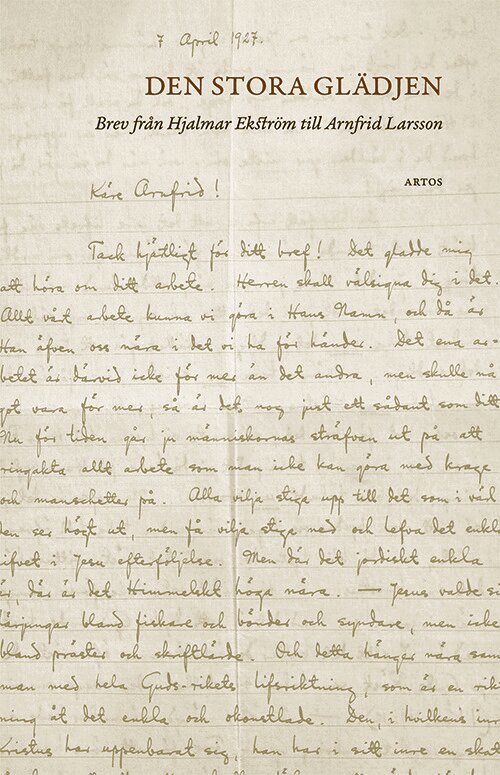 7 April 1927.
DEN STORA GLÄDJEN
Brev från Hjalmar Ekström till Arnfrid Larsson
ARTOS
Käre Arnfrid!
Tack hjärtligt för ditt bref! Det gladde mig
att höra om ditt arbete. Herren skall välsigna dig i det.
Allt vårt arbete kunna vi göra i Hans Namn, och då är
Han äfven oss nära i det vi ha för händer. Det ena ar-
betet är därvid icke för mer än det andra, men skulle nå
got vara för mer, så är det nog just ett sådant som ditt
Nu för tiden går ju människornas sträfvan ut på att
ringakta allt arbete som man icke kan göra med krage
och manschetter på. Alla vilja stiga upp till det som i värl
den ser högt ut, men få vilja stiga ned och lefva det enkla
lifvet i Jesu efterföljelse. Men där det jordiskt enkla
är, där är det Himmelskt höga nära. — Jesus valde si
lärjungar bland fiskare och bönder och syndare, men icke
bland präster och skriftlärde. Och detta hänger nära sam
man med hela Guds-rikets lifsriktning, som är en rikt
ning åt det enkla och okonstlade. Den, i hvilkens inre
Kristus har uppenbarat sig, han har i sitt inre en skatt